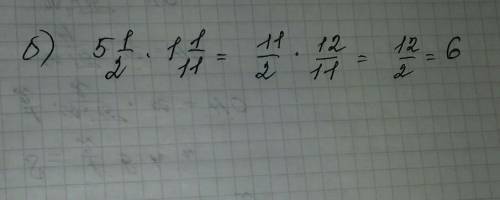 б) 5 1/2 · 1 1/11 = 11/2 · 12/11 = 12/2 = 6